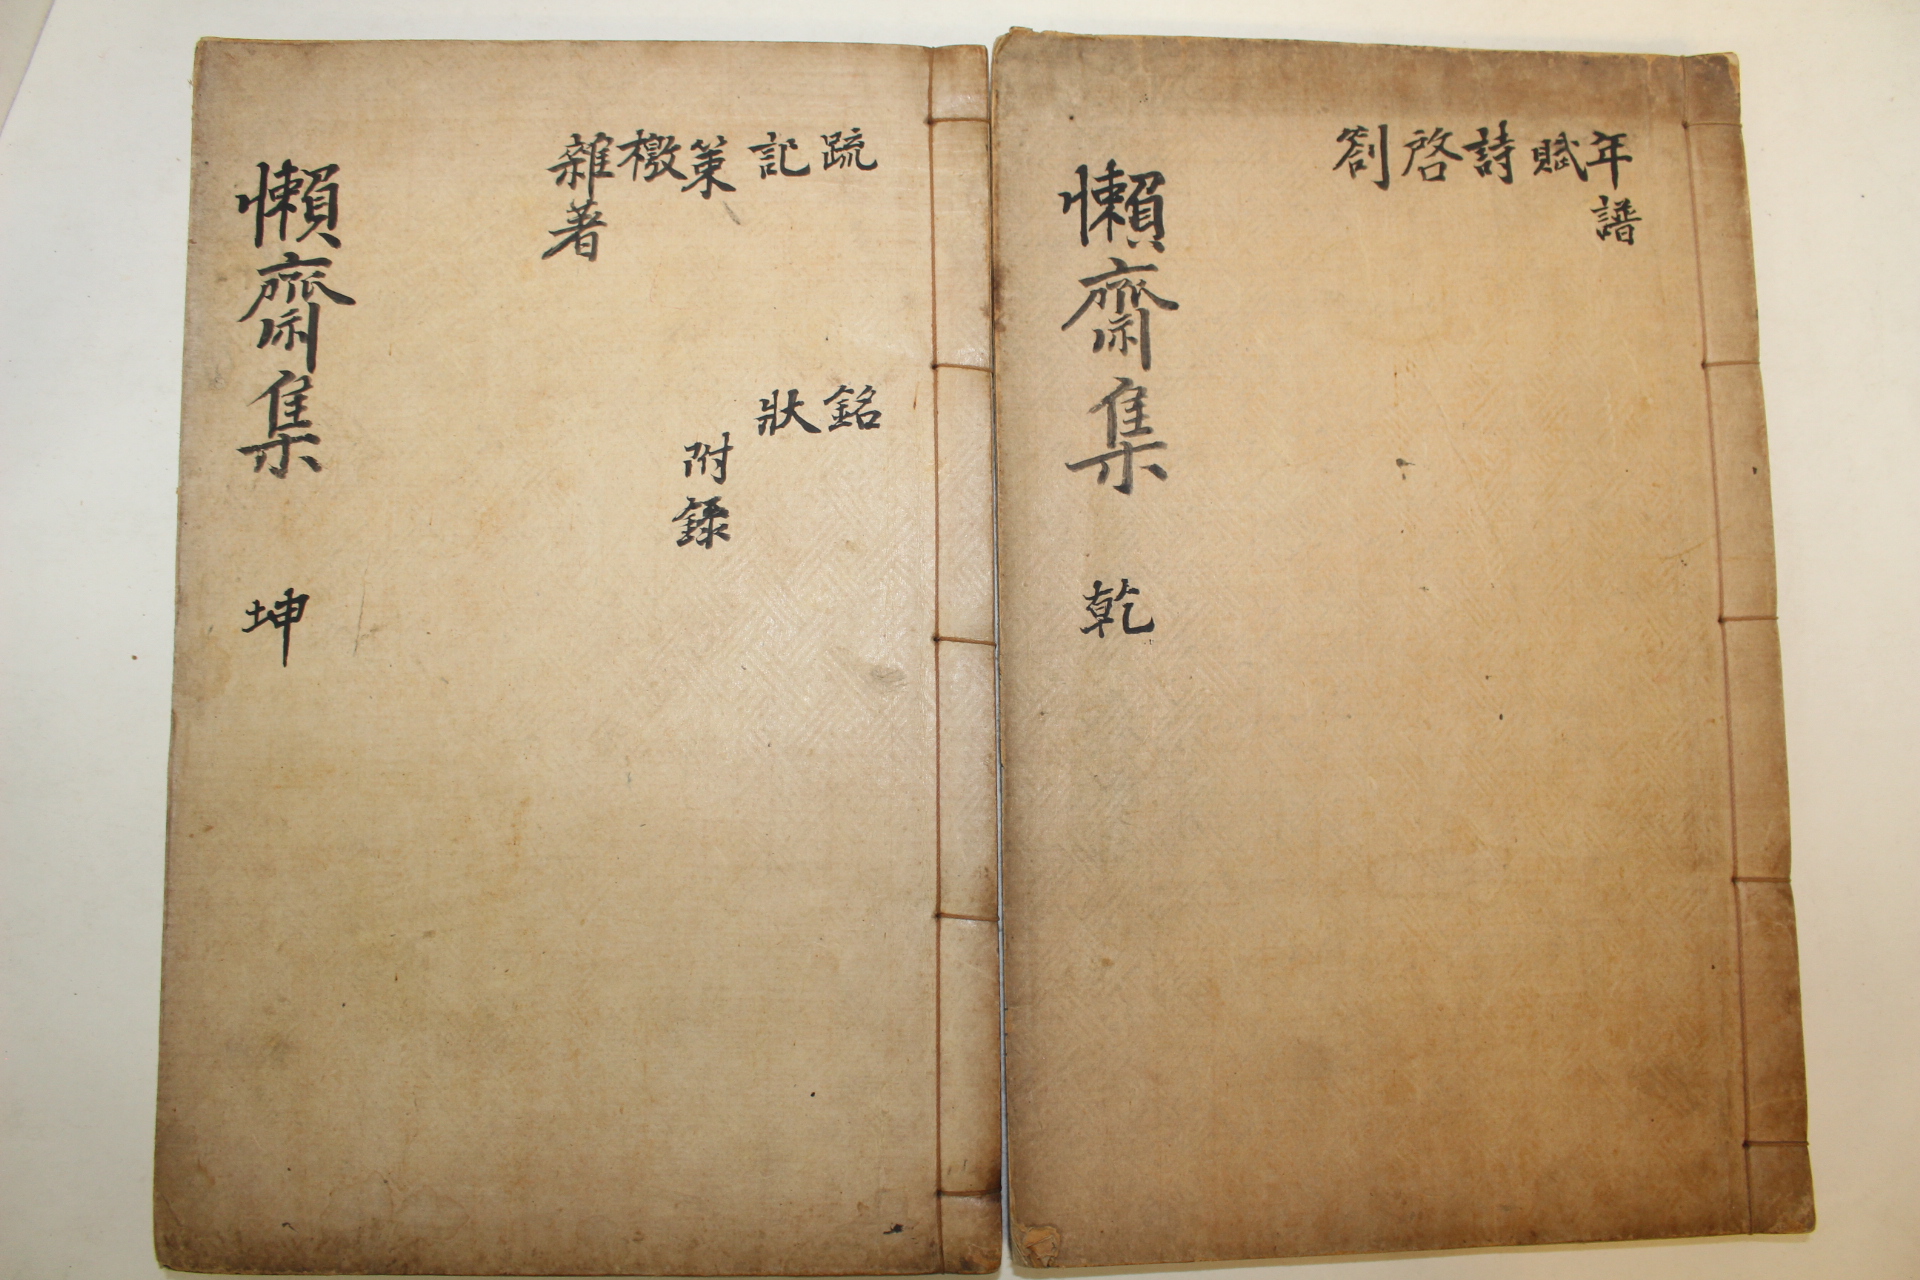 年譜
賦
詩
啓
劄
懶齋集 乾
疏
記
策
檄
雜著
銘
狀
附録
懶齋集 坤